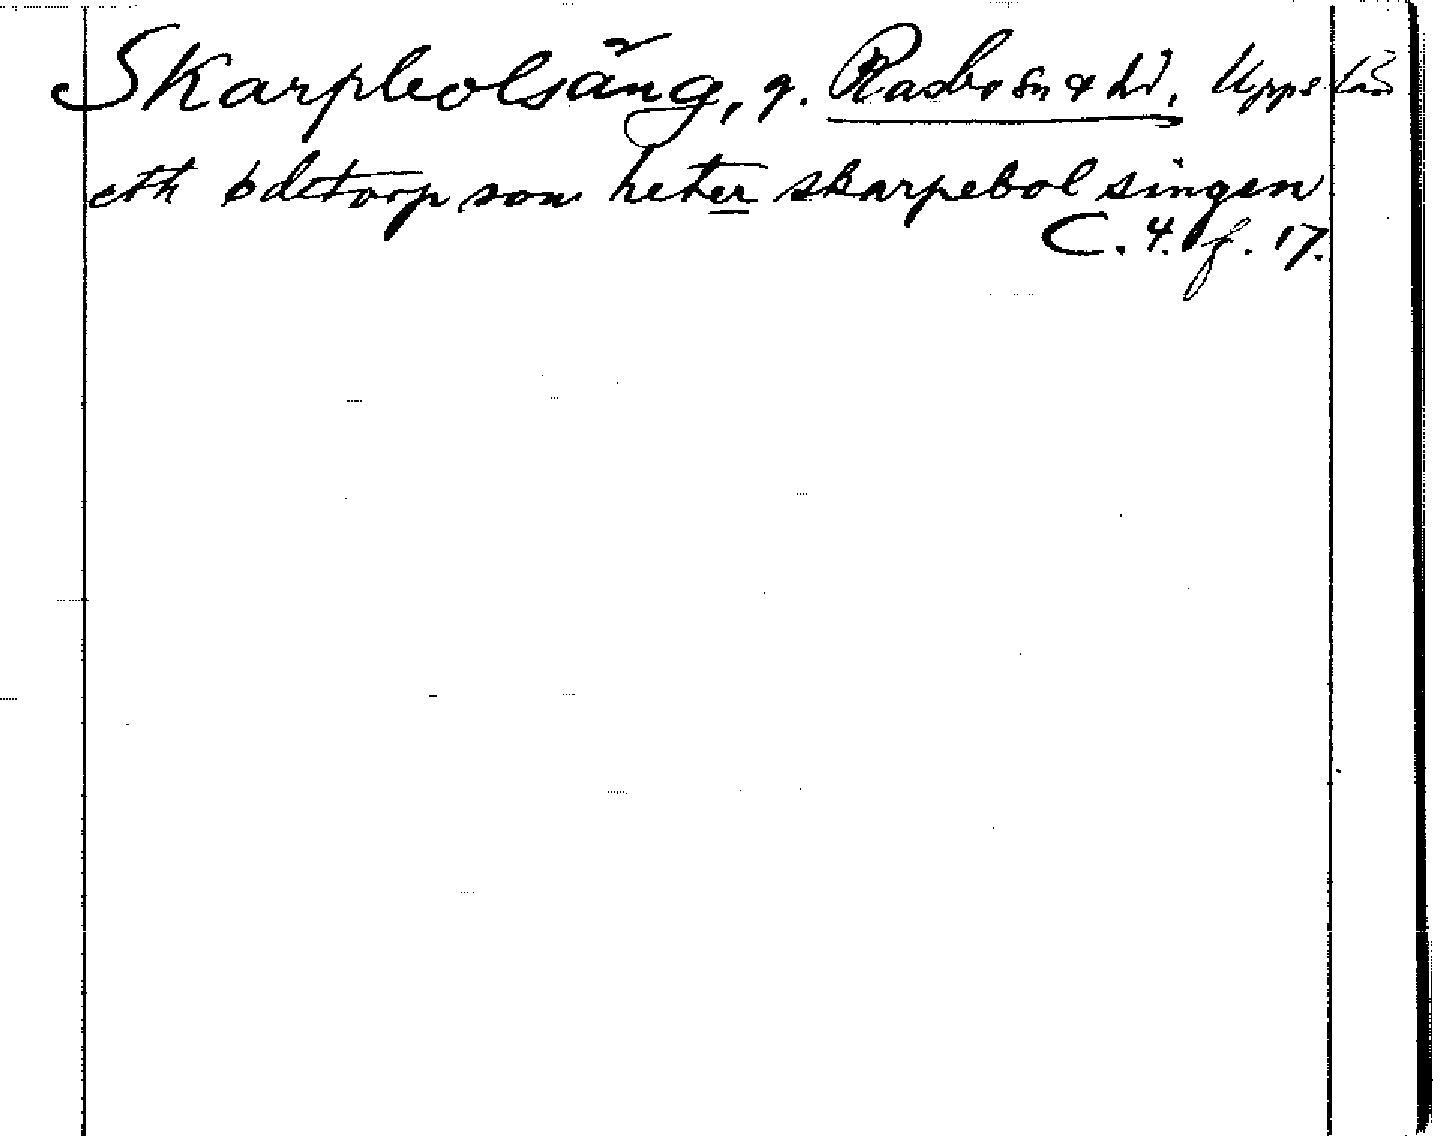 Skarpbolsäng, g. Rasbo sn & hd, Upps län
eth ödetorp som heter skarpebol singen
C. 4. f. 17.